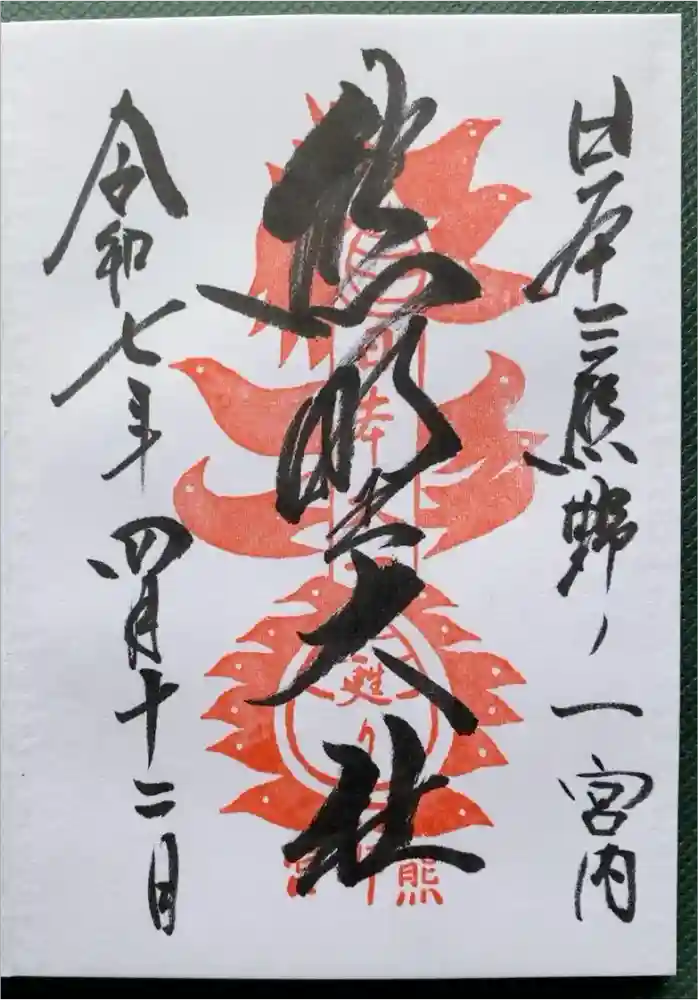 日本三熊野ノ一宮内
熊野大社
令和七年四月十二日
日本
甦り
熊